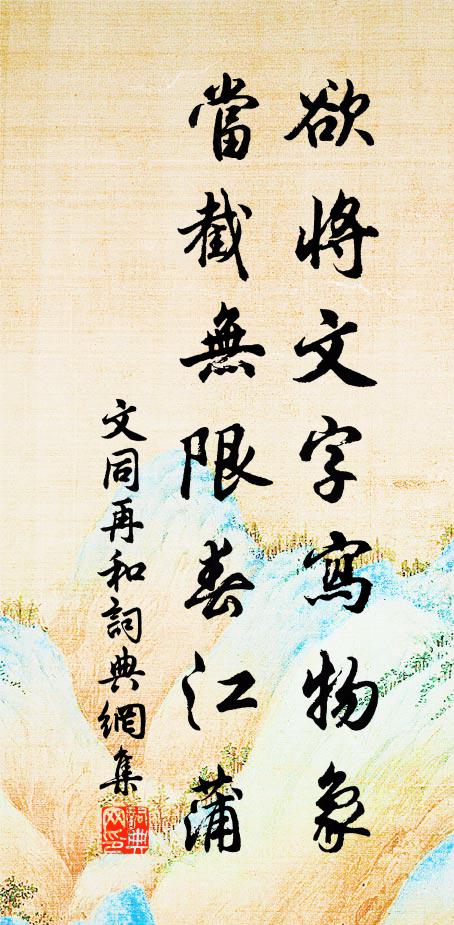 欲將文字寫物象
當截無限春江蒲
文同再和詞典網集
詞典網印